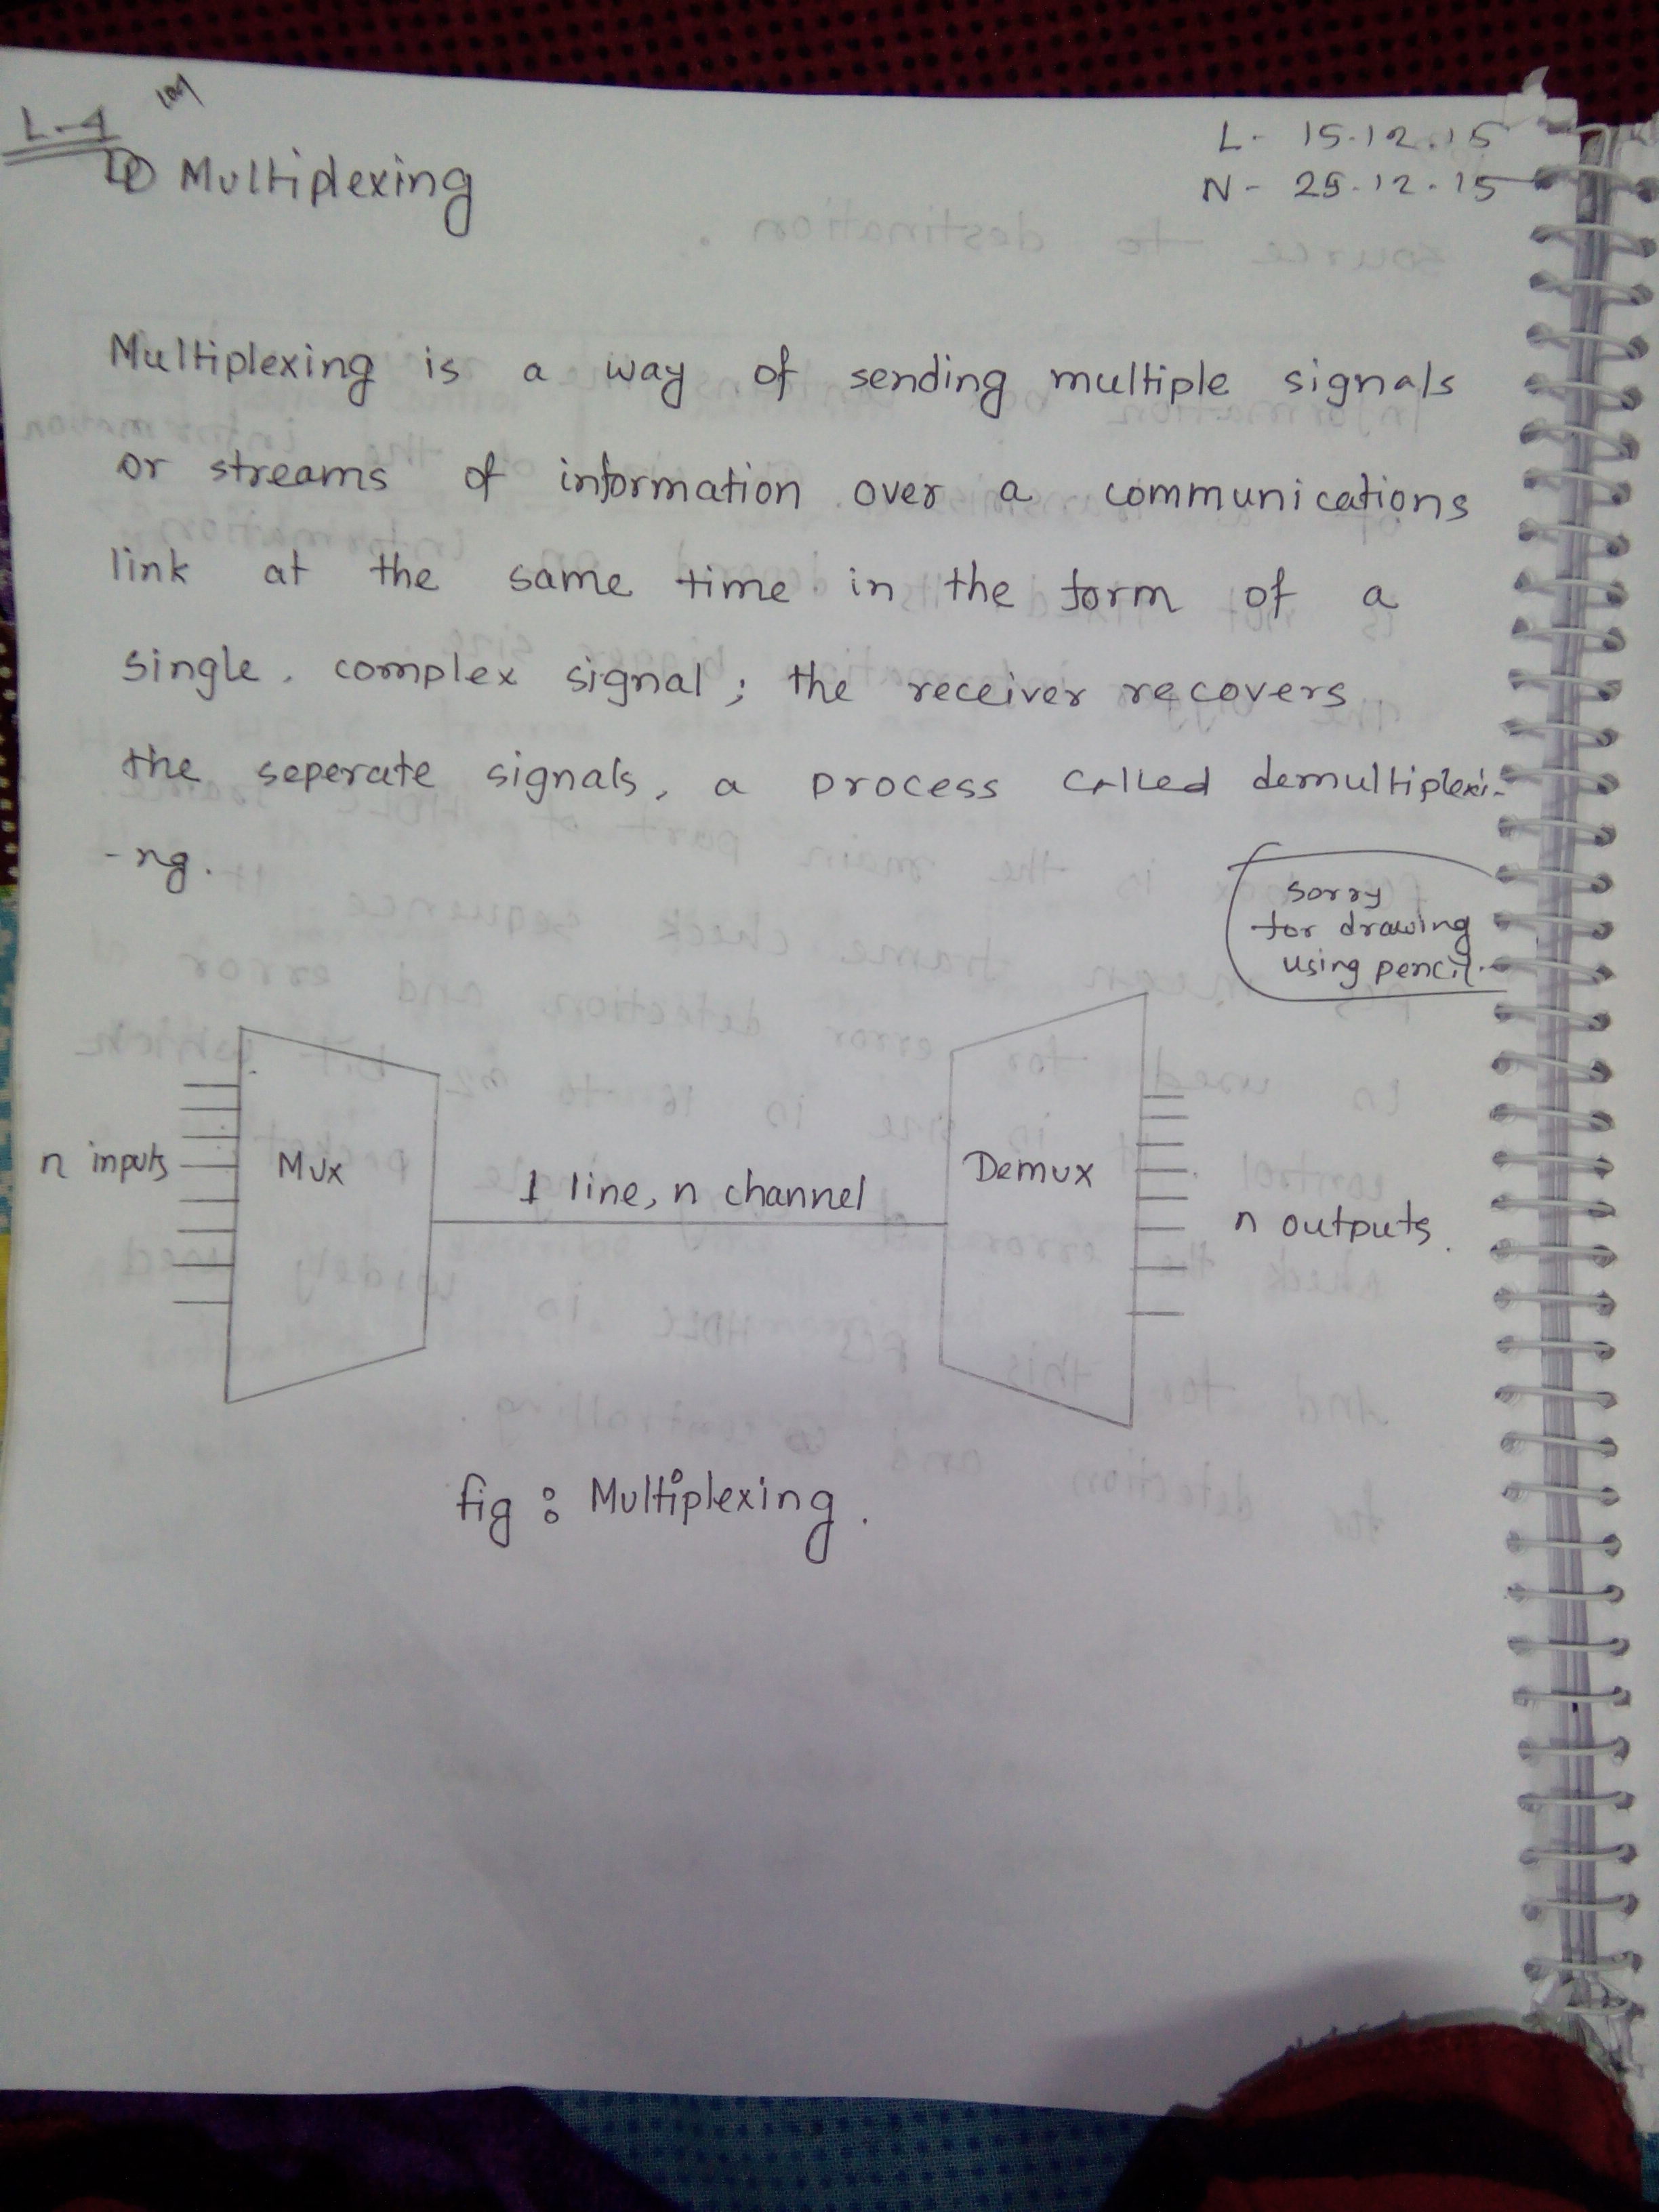 L-4
Multiplexing
L- 15.12.15
N- 25.12.15
Multiplexing is a way of sending multiple signals
or streams of information over a communications
link at the same time in the form of a
single, complex signal; the receiver recovers
the seperate signals, a process called demultiplexi-
-ng.
sorry
for drawing
using pencil.
n inputs
Mux
1 line, n channel
Demux
n outputs.
fig : Multiplexing.